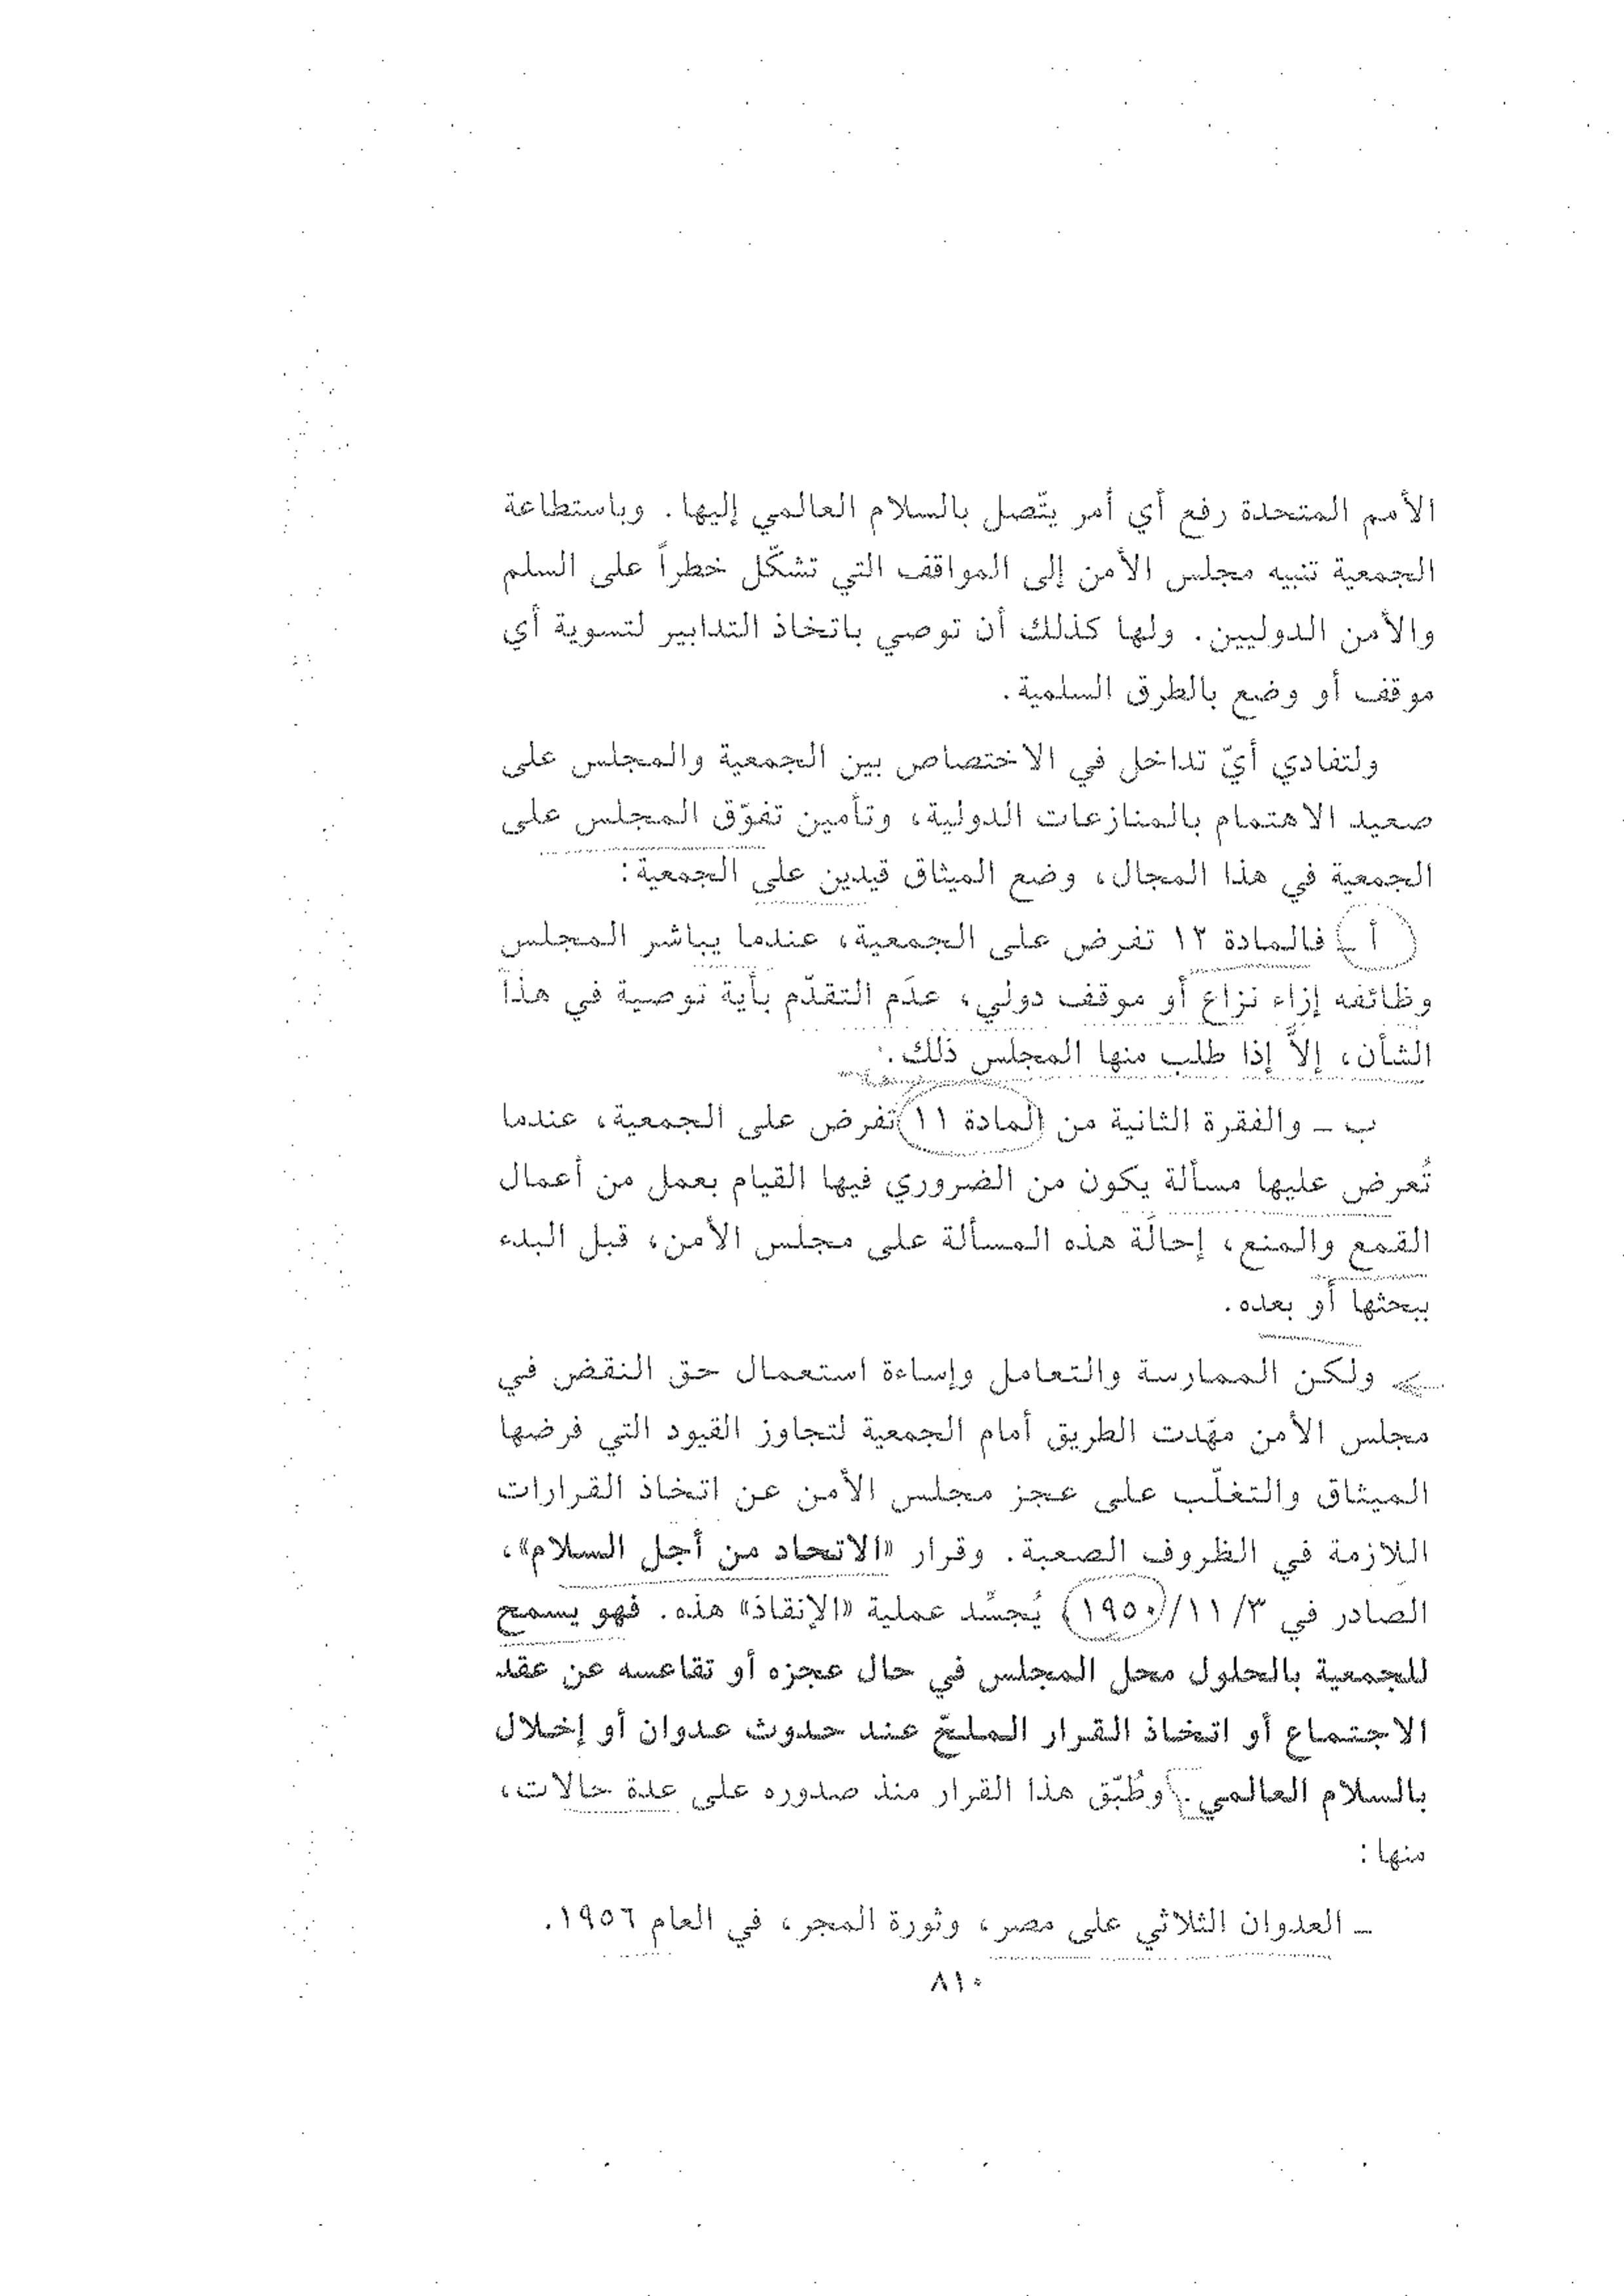 الأمم المتحدة رفع أي أمر يتّصل بالسلام العالمي إليها. وباستطاعة
الجمعية تنبيه مجلس الأمن إلى المواقف التي تشكّل خطراً على السلم
والأمن الدوليين. ولها كذلك أن توصي باتخاذ التدابير لتسوية أي
موقف أو وضع بالطرق السلمية.
ولتفادي أيّ تداخل في الاختصاص بين الجمعية والمجلس على
صعيد الاهتمام بالمنازعات الدولية، وتأمين تفوّق المجلس على
الجمعية في هذا المجال، وضع الميثاق قيدين على الجمعية:
أ ـ فالمادة ١٢ تفرض على الجمعية، عندما يباشر المجلس
وظائفه إزاء نزاع أو موقف دولي، عدَم التقدّم بأية توصية في هذا
الشأن، إلاَّ إذا طلب منها المجلس ذلك.
ب ـ والفقرة الثانية من المادة ١١ تفرض على الجمعية، عندما
تُعرض عليها مسألة يكون من الضروري فيها القيام بعمل من أعمال
القمع والمنع، إحالَة هذه المسألة على مجلس الأمن، قبل البدء
ببحثها أو بعده.
ولكن الممارسة والتعامل وإساءة استعمال حق النقض في
مجلس الأمن مهّدت الطريق أمام الجمعية لتجاوز القيود التي فرضها
الميثاق والتغلّب على عجز مجلس الأمن عن اتخاذ القرارات
اللازمة في الظروف الصعبة. وقرار «الاتحاد من أجل السلام»،
الصادر في ٣/١١/١٩٥٠) يُجسِّد عملية «الإنقاذ» هذه. فهو يسمح
للجمعية بالحلول محل المجلس في حال عجزه أو تقاعسه عن عقد
الاجتماع أو اتخاذ القرار الملحّ عند حدوث عدوان أو إخلال
بالسلام العالمي. وطُبّق هذا القرار منذ صدوره على عدة حالات،
منها:
ـ العدوان الثلاثي على مصر، وثورة المجر، في العام ١٩٥٦.
٨١٠